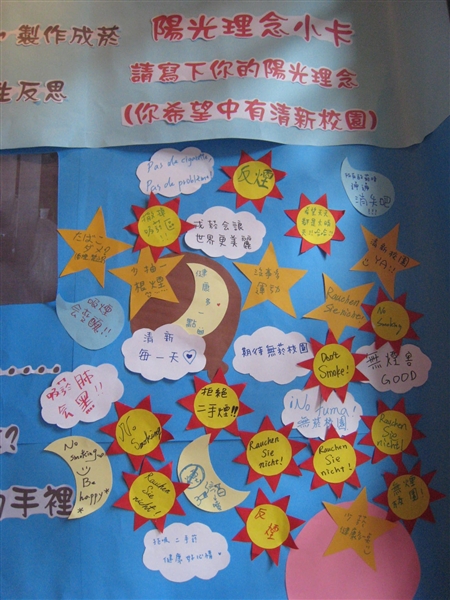 製作成菸
陽光理念小卡
請寫下你的陽光理念
(你希望中有清新校園)
性反思
Pas de cigarette!
Pas de problème!
反煙
消失吧!!
戒菸會讓
世界更美麗
たばこ
ダメ
清新校園
YA!!
少抽一
根煙
健康多一點
Rauchen
Sie nicht
No
Smoking
吸煙
會變醜!!
清新
每一天♡
期待無菸校園
Don't
Smoke!
無煙害
GOOD
吸菸肺
會黑!!
拒絕
二手煙!!
No Smoking
¡No fuma!
無菸校園
Rauchen
Sie
nicht!
Rauchen
Sie
nicht!
Rauchen
Sie
nicht!
No
smoking
Be
happy
Rauchen
Sie
nicht!
無煙
校園!
反煙
少菸
健康
拒吸二手菸
健康好心情
手裡